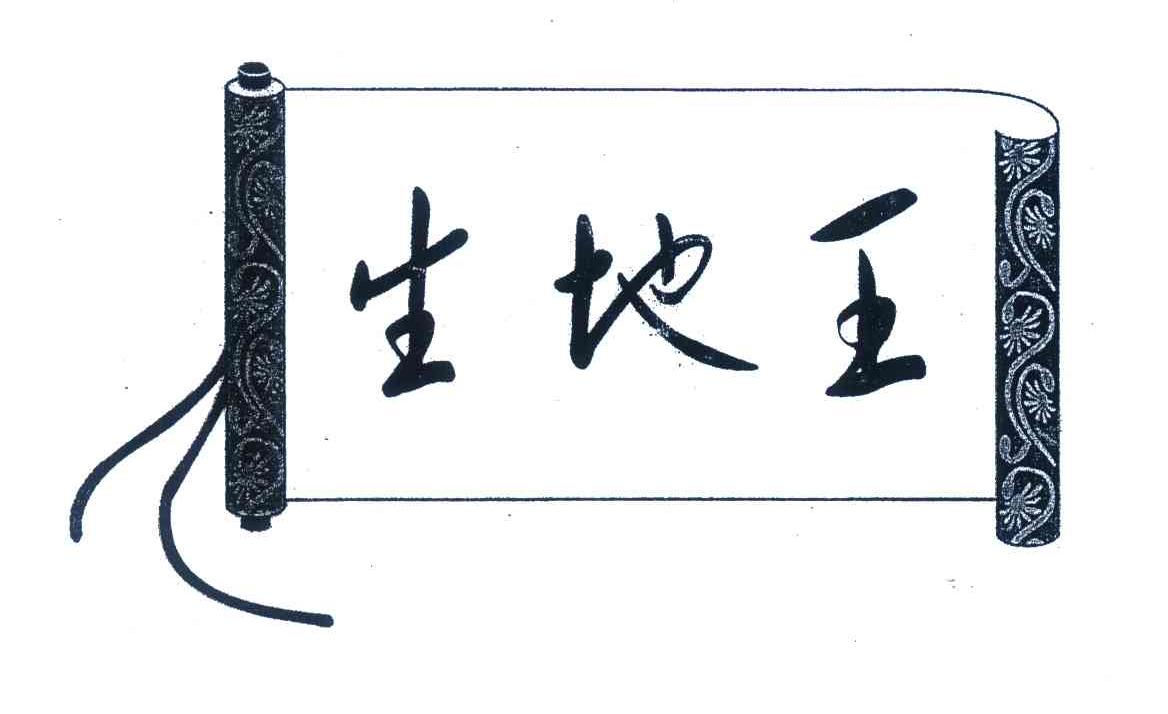 生地王